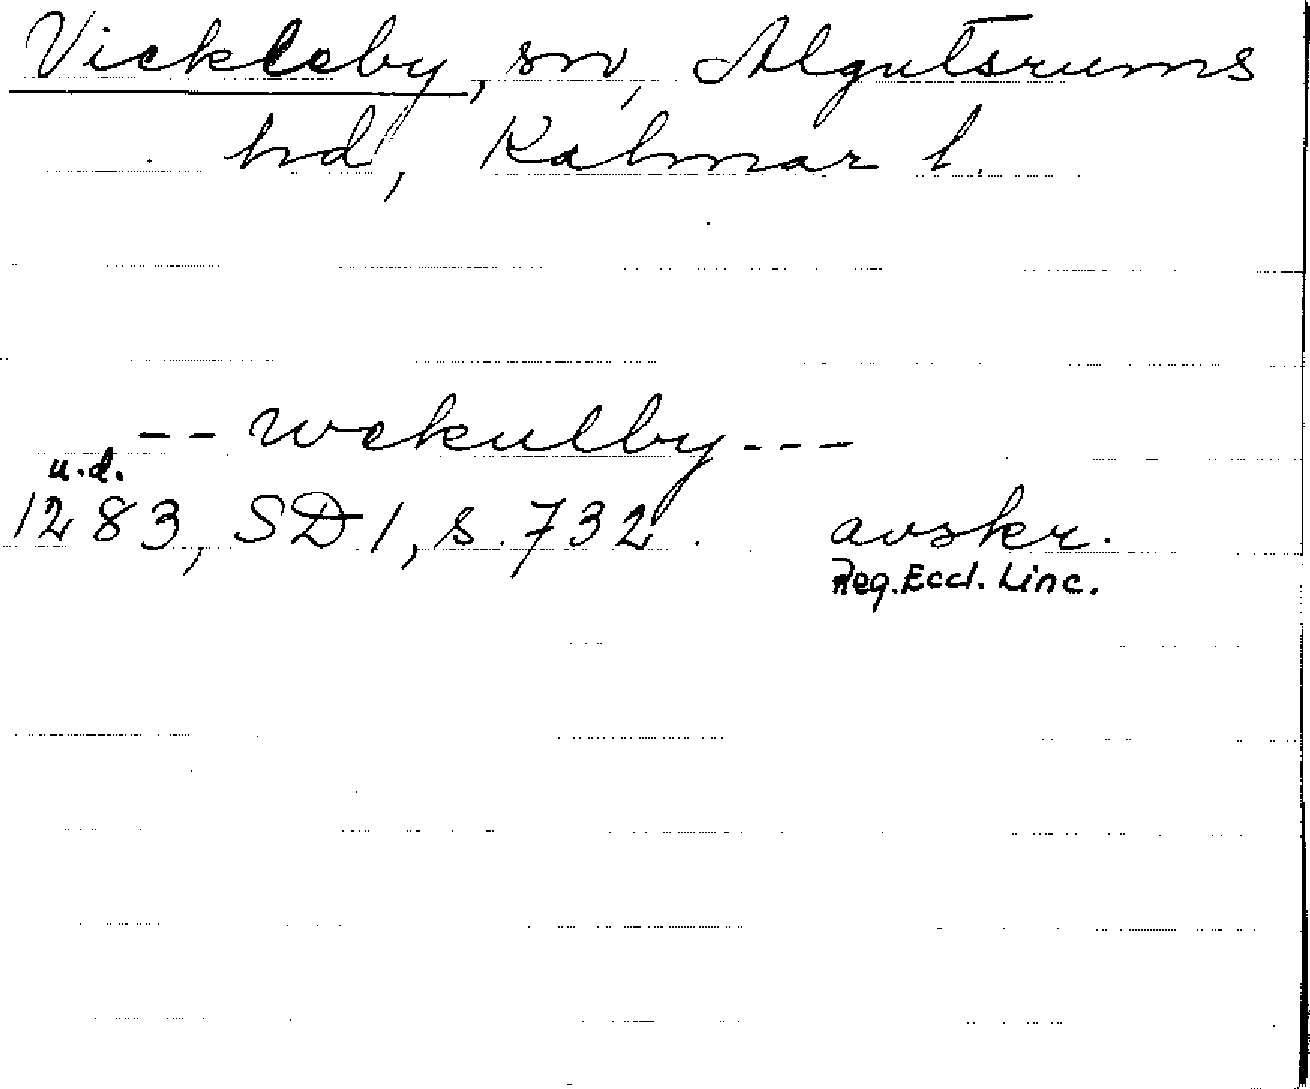 Vickleby, sn, Algutsrums
hd, Kalmar l.
-- wekulby ---
u.d.
1283, SD 1, s. 732. avskr.
Reg. Eccl. Linc.